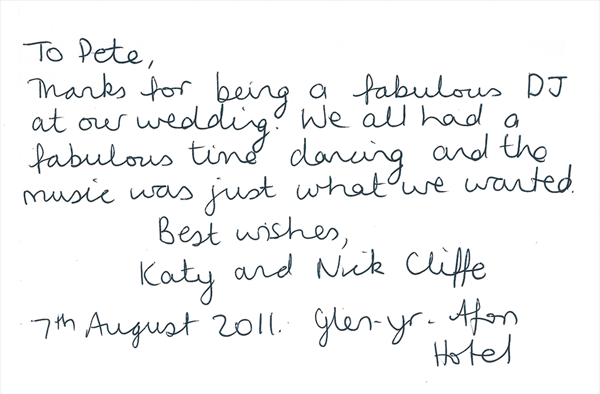 To Pete,
Thanks for being a fabulous DJ
at our wedding. We all had a
fabulous time dancing and the
music was just what we wanted.
Best wishes,
Katy and Nick Cliffe
7th August 2011. Glen-yr-Afon
Hotel